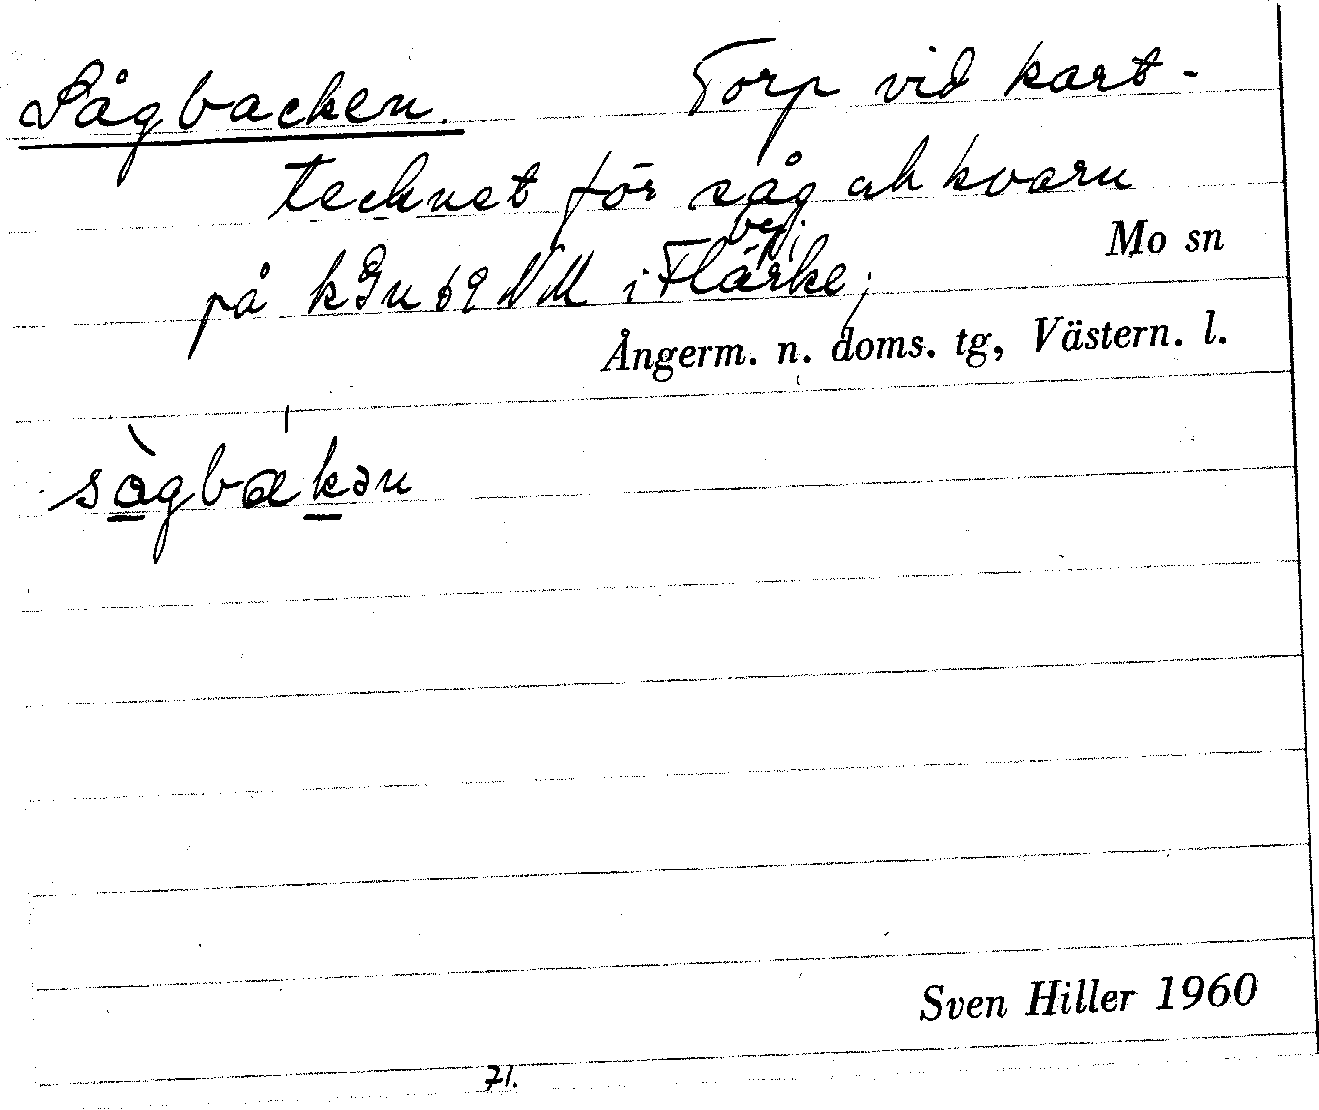 Sågbacken. Torp vid kart-
tecknet för såg och kvarn
bef.
på kGn 69 NM i Flärke,
Mo sn
Ångerm. n. doms. tg, Västern. l.
sàgbakən
Sven Hiller 1960
71.